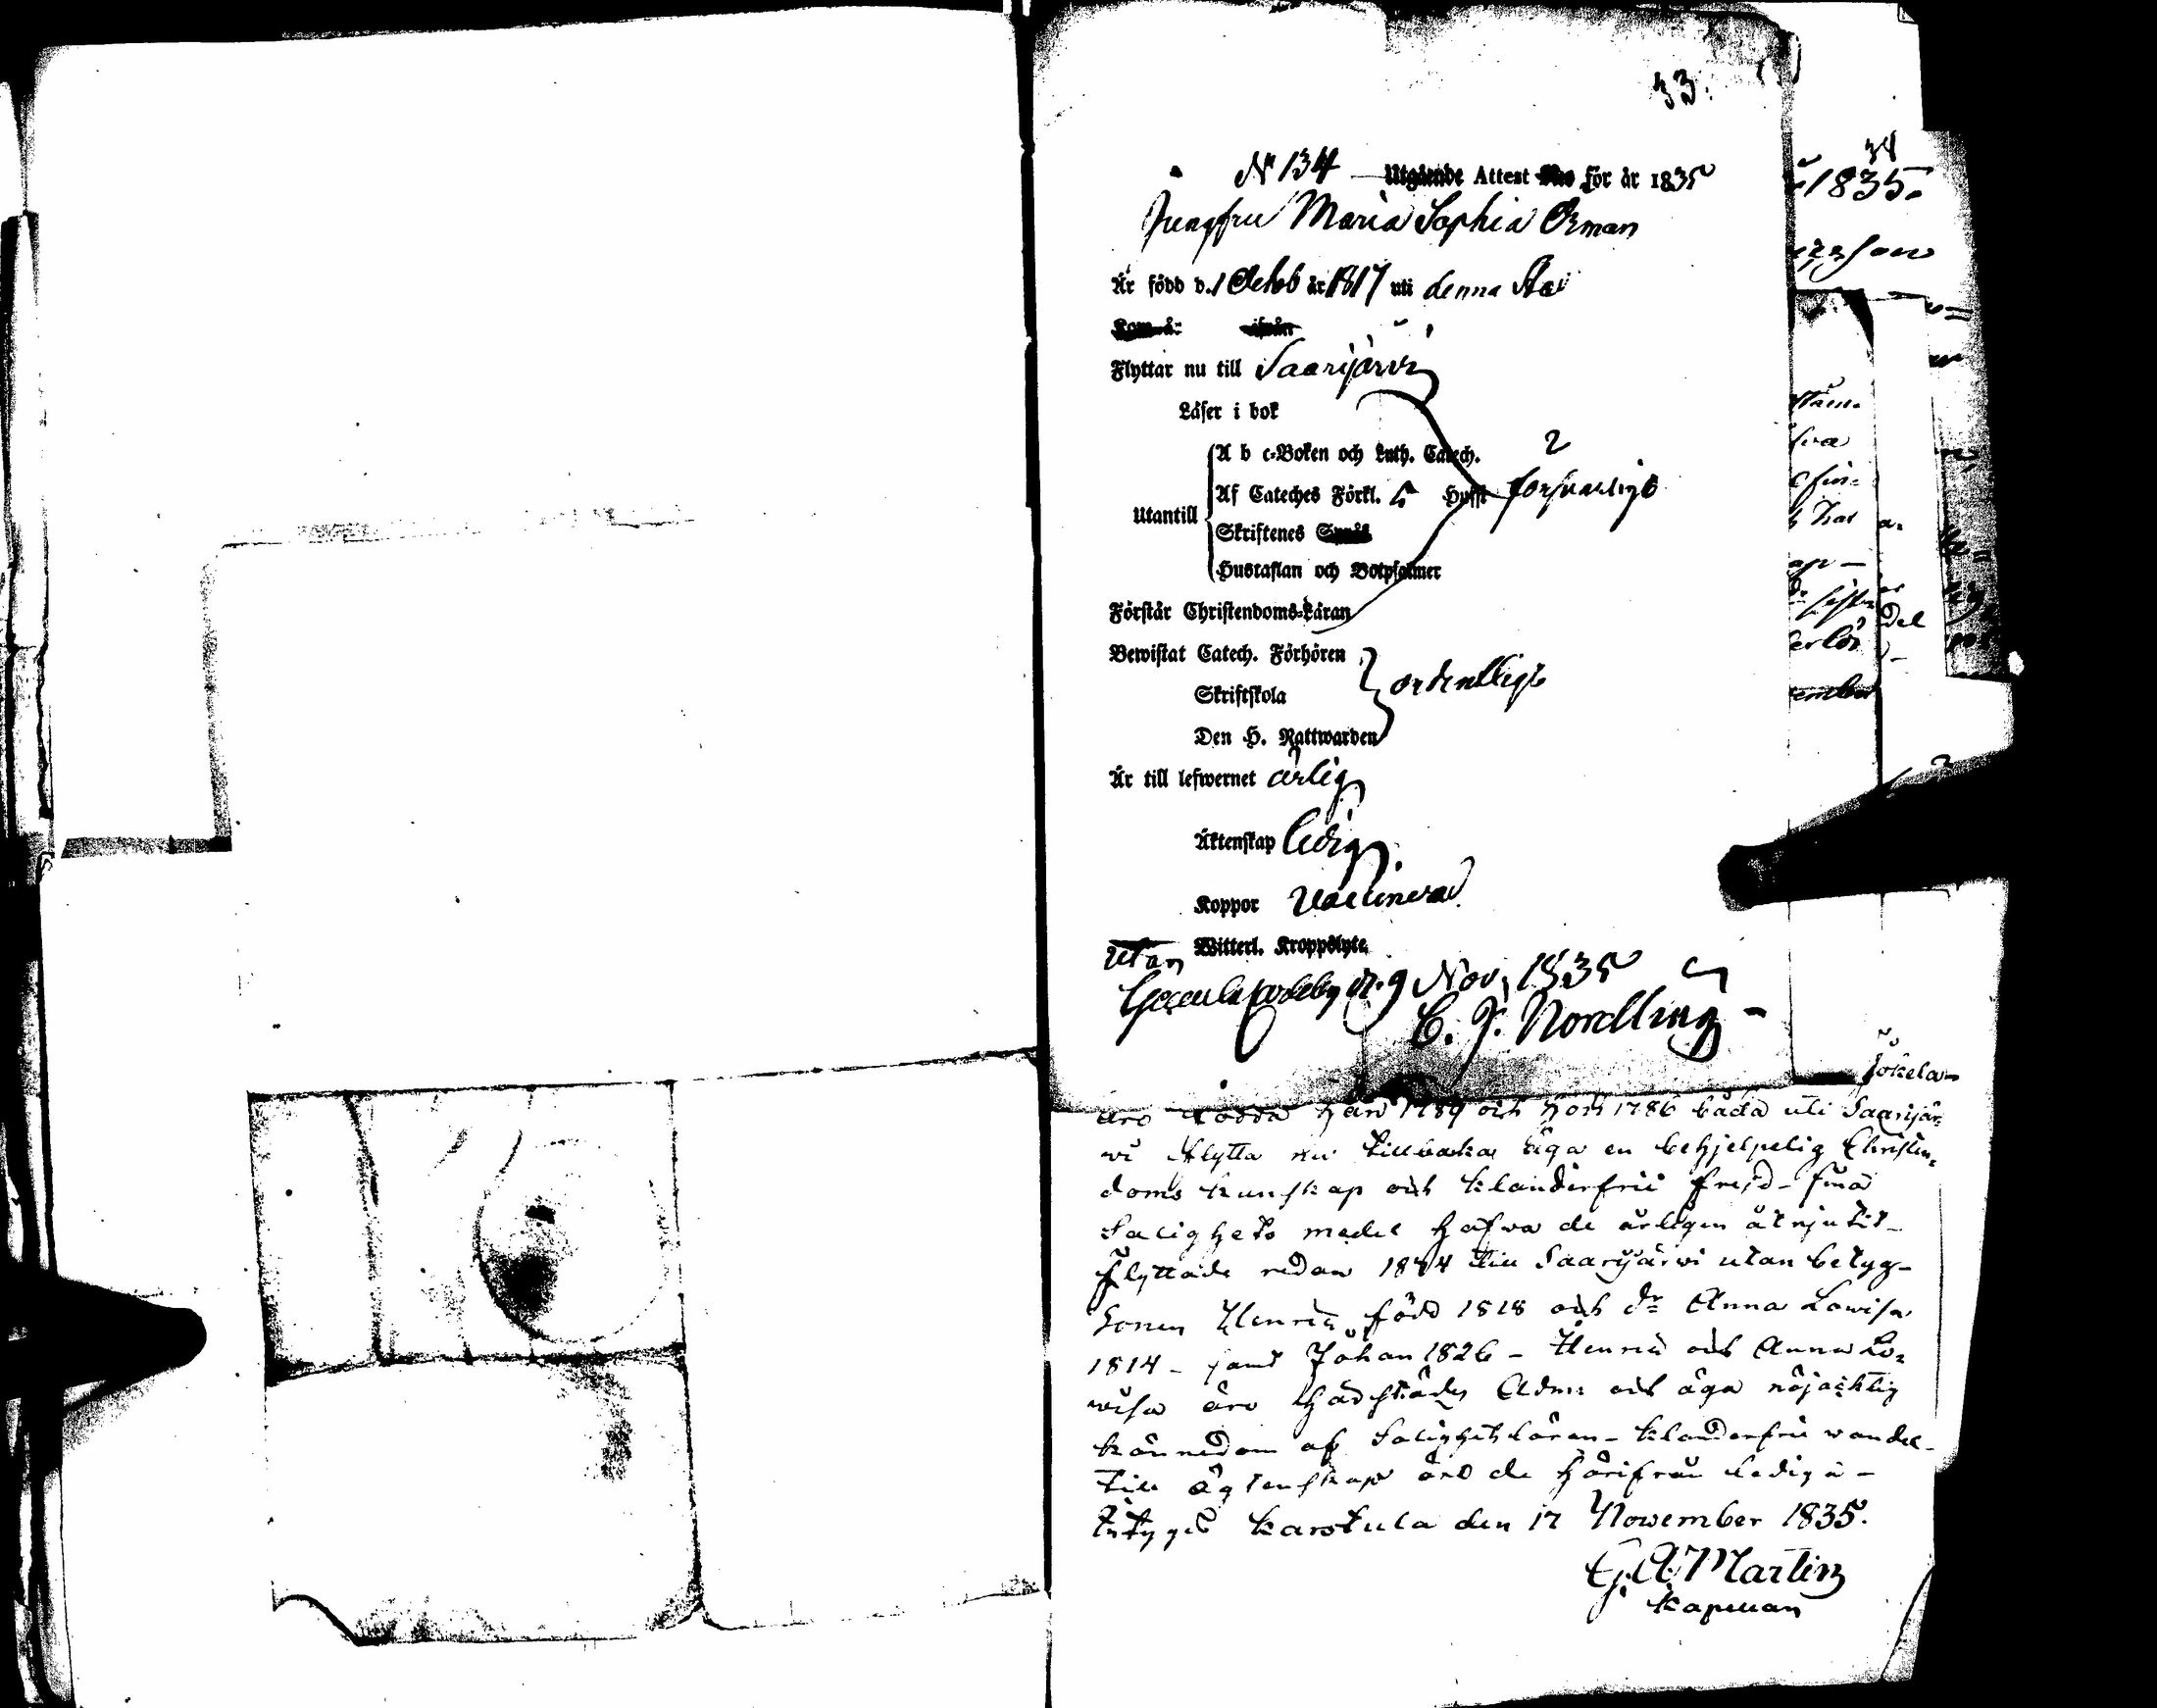 33.
N 134 Utgående Attest för år 1835
Jungfru Maria Sophia Öman
Är född d. 1 Octob år 1817 uti denna
Kom år ifrån
Flyttar nu till Saarijärvi
Läser i bok
A b c-Boken och Luth. Catech. 2
Utantill Af Cateches Förkl. 5 Hufst försvarligt
Skriftenes Språk
Hustaflan och Botpsalmer
Förstår Christendoms-Läran
Bewistat Catech. Förhören
Skriftskola ordentligt
Den H. Nattwarden
Är till lefwernet ärlig
Äktenskap ledig.
Koppor Vaccinerad
utan Witterl. Kroppslyte
Gamlakarleby d. 9 Nov. 1835
C. J. Nordling
Jokela-
äro födda han 1789 och hon 1786 båda uti Saarijär=
wi flytta nu tillbaka äga en behjelpelig Christen=
doms kunskap och klanderfrii frejd - sina
Salighets medel hafwa de årligen åtnjutit -
flyttade redan 1834 till Saarijärwi utan betyg -
Sonen Henric född 1818 och dr Anna Lowisa
1814 - samt Johan 1826 - Henric och Anna Lo=
wisa äro Adm: och äga nöjacktig
kännedom af Salighetsläran - klanderfrii wandel -
till ägtenskap äro de härifrån lediga -
Intygas Karstula den 17 November 1835.
G. A. Martin
Kapellan
34
1835.